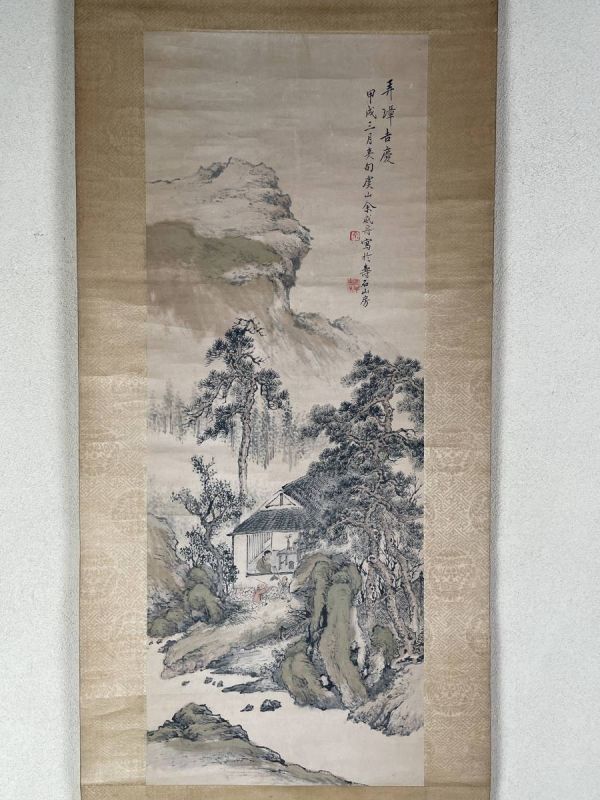 弄璋吉慶
甲戌三月爰旬虞山余威丹寫於壽石山房